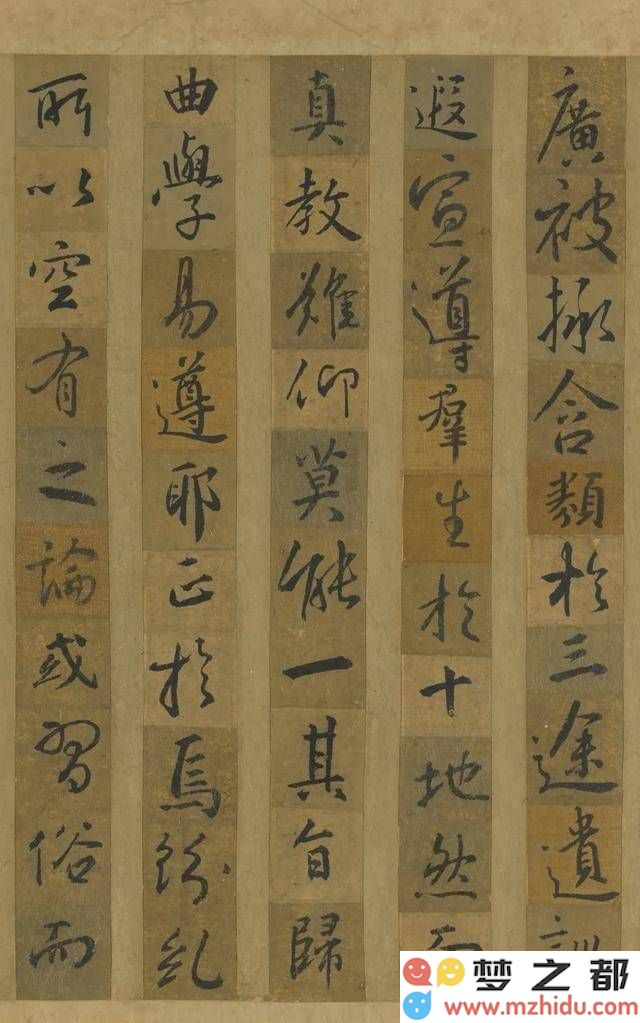 廣被拯含類於三途遺訓
遐宣導群生於十地然而
真教難仰莫能一其旨歸
曲學易遵耶正於焉紛糺
所以空有之論或習俗而
梦之都
www.mzhidu.com